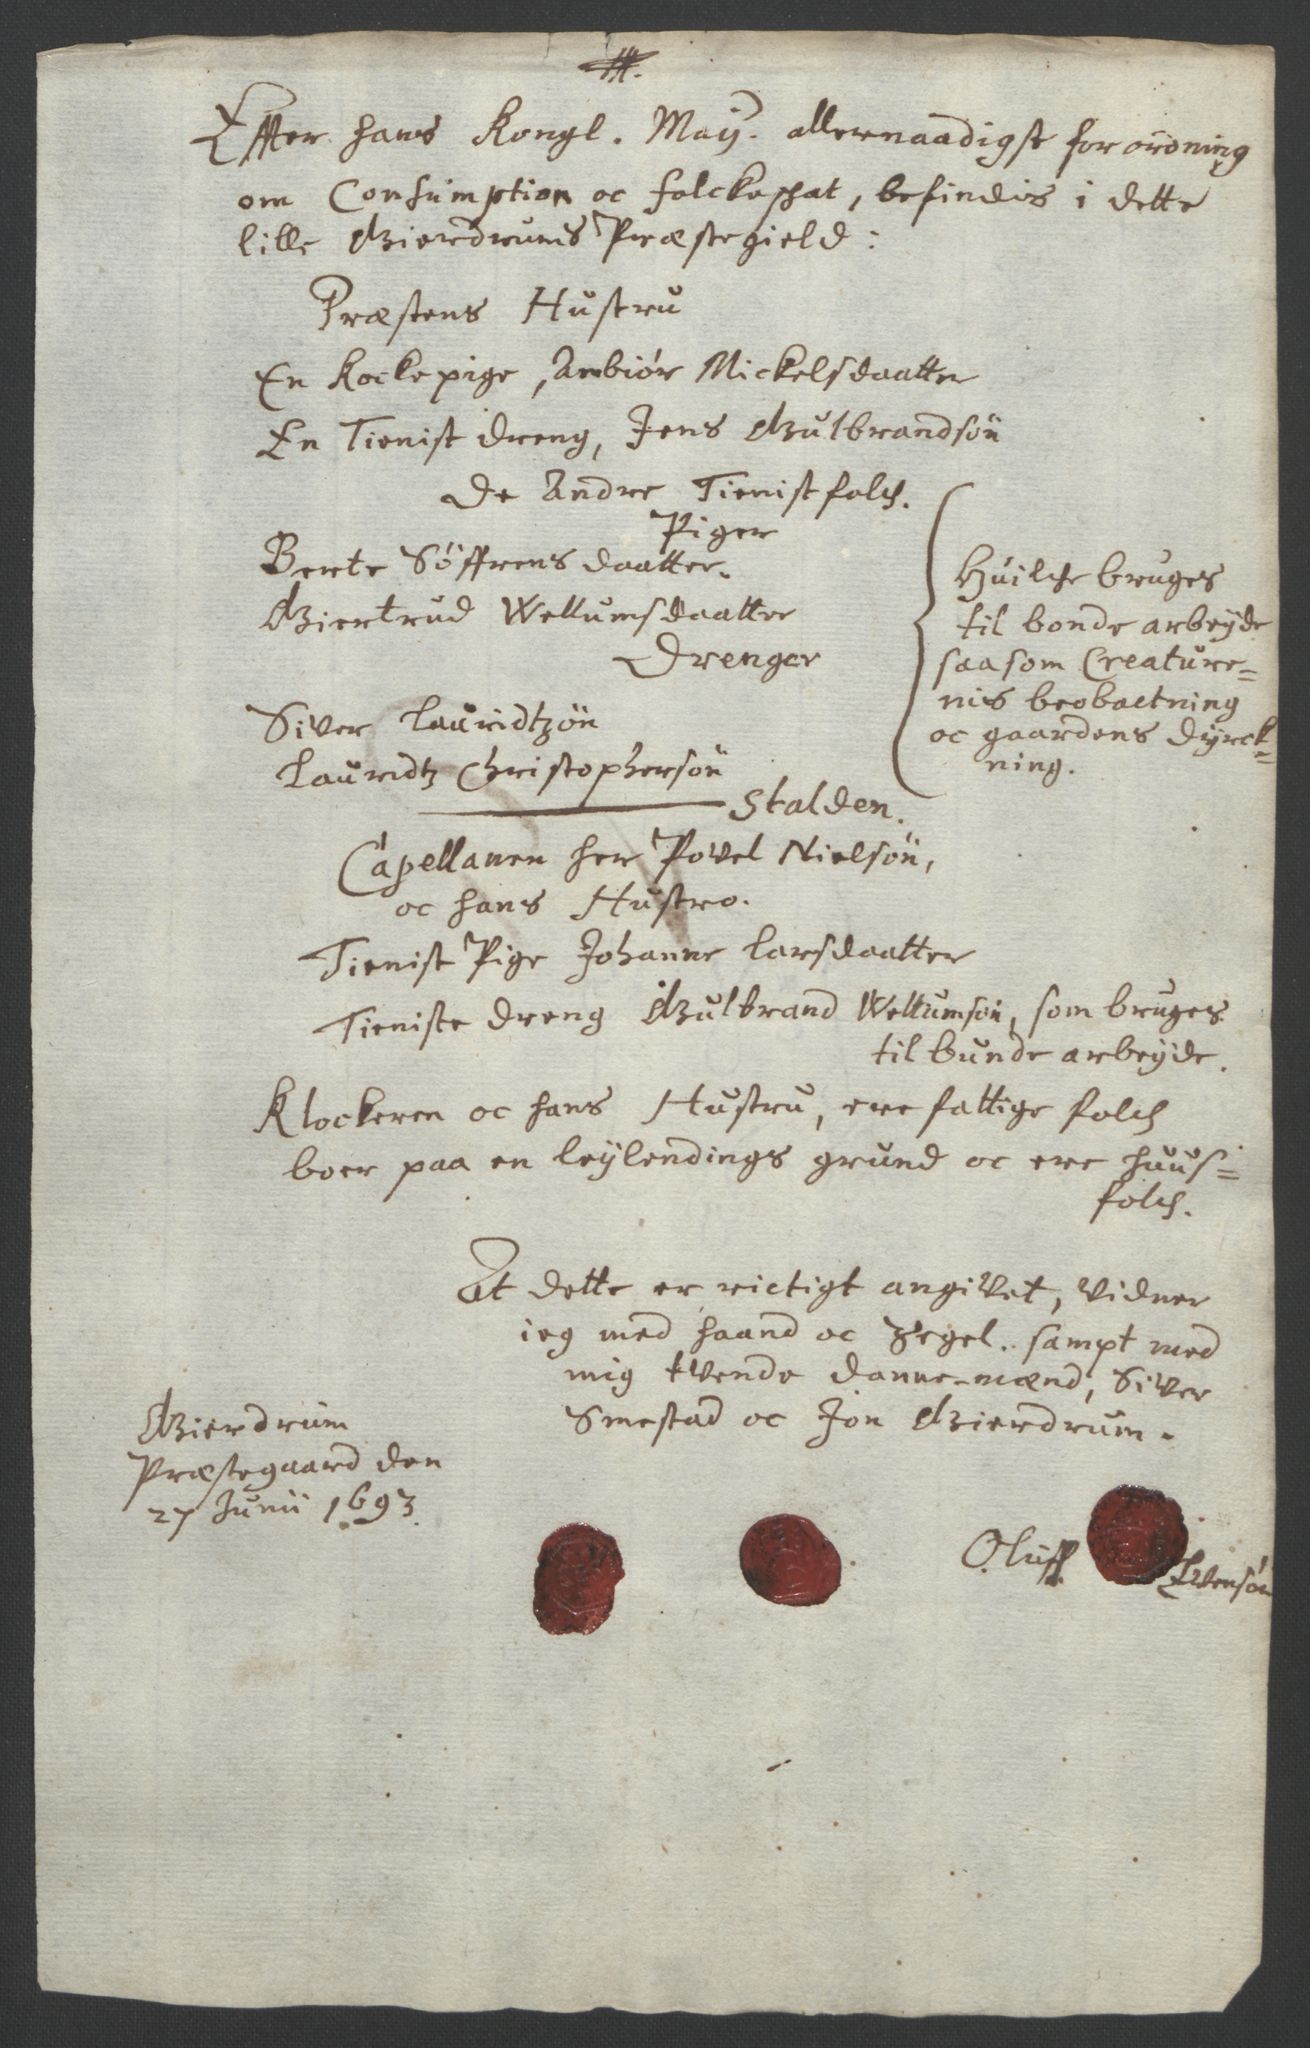 Effter hans Kongl. Maÿ. allernaadigste forordning
om Consumption oc folckeshat, befindis i dette
lille Gierdrums Præstegield:
Præstens Hustru
En Kockepige, Anbiör Mickelsdaatter
En Tienist dreng, Jens Gulbrandsön
De Andre Tienistfolch.
Piger
Berte Söffrensdaatter.
Giertrud Wellumsdaatter
Drenger
Siver Lauridtzön
Lauridtz Christophersön
Huilche bruges
til bonde arbeÿde
saasom Creature=
nis beobactning
oc gaardens dÿrck=
ning.
Stalden.
Capellanen her Povel Nielsön,
oc hans Hustro.
Tienist Pige Johanne Larsdaatter
Tieniste dreng Gulbrand Wellumsön, som bruges
til bunde arbeÿde.
Klockeren oc hans Hustru, ere fattige folch
boer paa en leÿlendings grund oc ere huus=
folch.
At dette er rictigt angivet, vidner
ieg med haand oc Zegel. sampt med
mig tvende danne-mænd, Siver
Smestad oc Jon Gierdrum.
Gierdrum
Præstegaard den
27 Junii 1693.
Oluff Ivensön